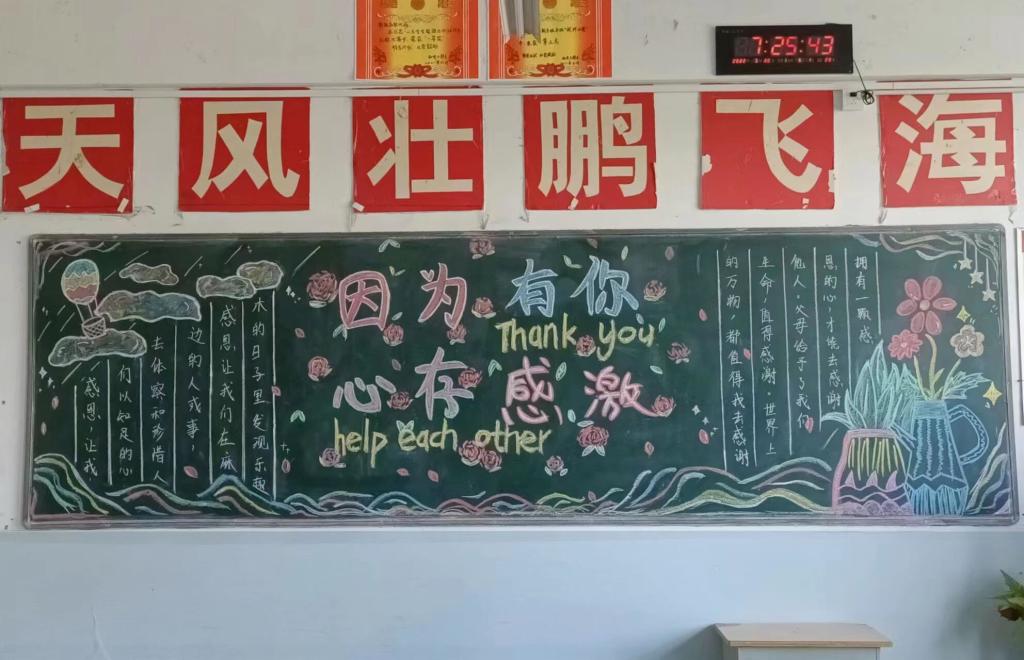 7:25:43
天风壮鹏飞海
因为有你
Thank you
心存感激
help each other
感恩，让我
们以知足的心
去体察和珍惜人
边的人或事，
感恩让我们在麻
木的日子里发现乐趣
拥有一颗感
恩的心，才能去感谢
他人。父母给予了我们
生命，值得感谢。世界上
的万物，都值得我去感谢